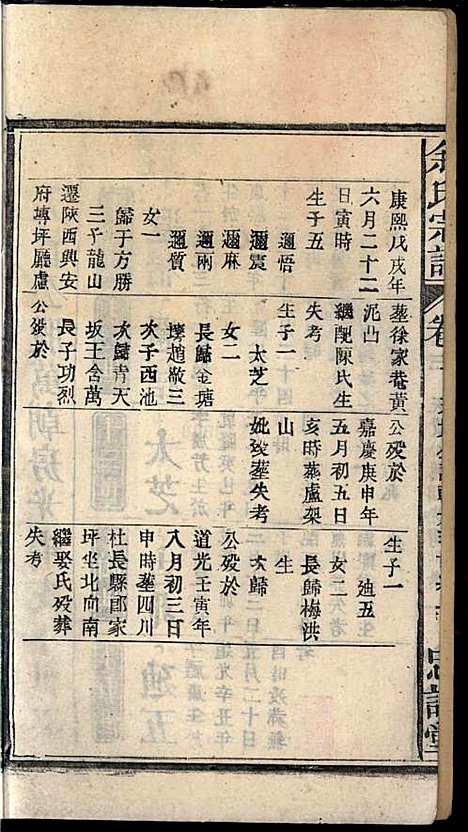 余氏宗譜
卷
康熙戊戌年
六月二十二
日寅時
生子五
邇悟
邇震
邇麻
邇兩
邇質
女一
歸于方勝
三子龍山
遷陝西興安
府塼坪廳盧
葬徐家巷黃
泥凸
繼配陳氏生
失考
生子一
太芝
女二
長歸金塘
壪趙敬三
次子西池
次歸青天
坂王含萬
長子功烈
公歿於
公歿於
嘉慶庚申年
五月初五日
亥時葬盧架
山
妣歿葬失考
生子一
迪五
女二
長歸梅洪
生
次歸
公歿於
道光壬寅年
八月初三日
申時葬四川
杜長縣郎家
坪坐北向南
繼娶氏歿葬
失考